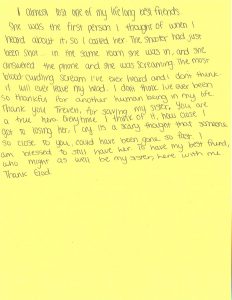 I almost lost one of my life long best friends
She was the first person I thought of when I
heard about it, so I called her. The shooter had just
been shot in the same room she was in, and she
answered the phone and she was screaming. The most
blood curdling scream I've ever heard and I don't think
it will ever leave my head. I don't think I've ever been
so thankful for another human being in my life.
Thank you Treven, for saving my sister, you are
a true hero. Everytime I think of it, how close I
got to losing her, I cry. It's a scary thought that someone
so close to you, could have been gone so fast. I
am blessed to still have her. To have my best friend,
who might as well be my sister, here with me
Thank God.